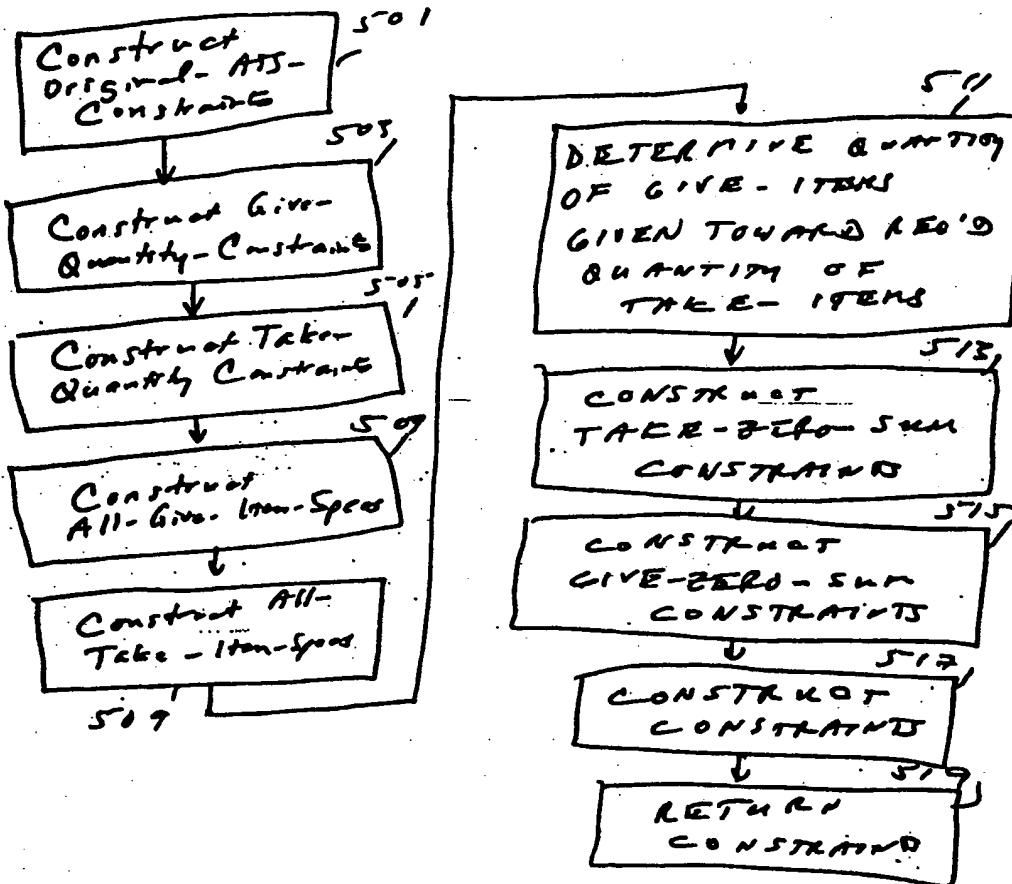 501
Construct
Original-ATS-
Constraints
503
Construct Give-
Quantity-Constraints
505
Construct Take-
Quantity Constraints
509
Construct
All-Give-Item-Specs
Construct All-
Take-Item-Specs
509
511
DETERMINE QUANTITY
OF GIVE-ITEMS
GIVEN TOWARD REQ'D
QUANTITY OF
TAKE-ITEMS
513
CONSTRUCT
TAKE-ZERO-SUM
CONSTRAINTS
515
CONSTRUCT
GIVE-ZERO-SUM
CONSTRAINTS
517
CONSTRUCT
CONSTRAINTS
519
RETURN
CONSTRAINTS